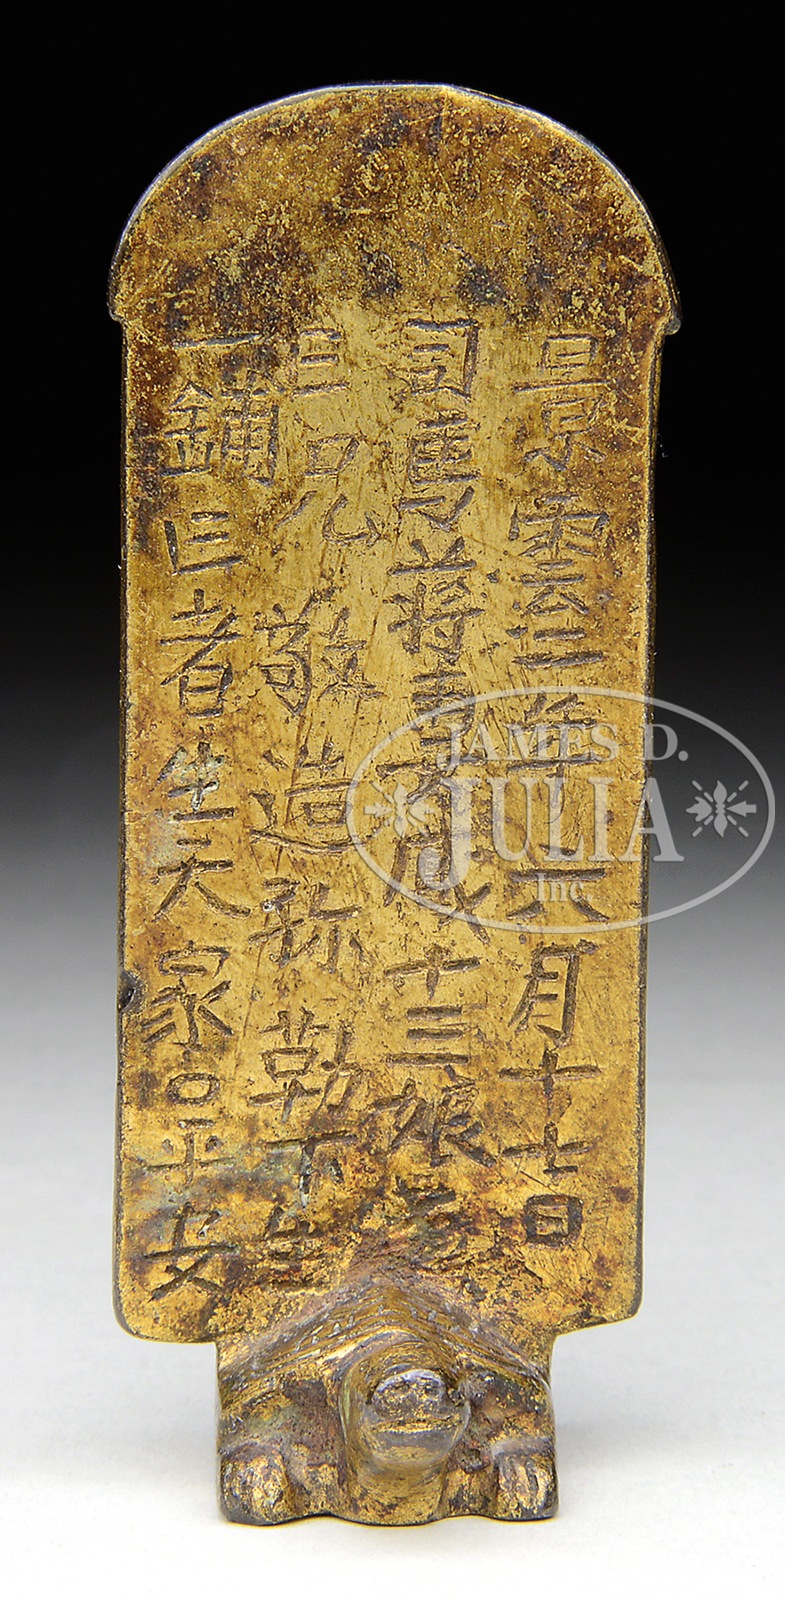 景雲二年六月十七日
司馬蔣妻成十三娘爲
亡兄敬造弥勒下生
一鋪亡者生天家口平安
JAMES D.
JULIA
Inc.